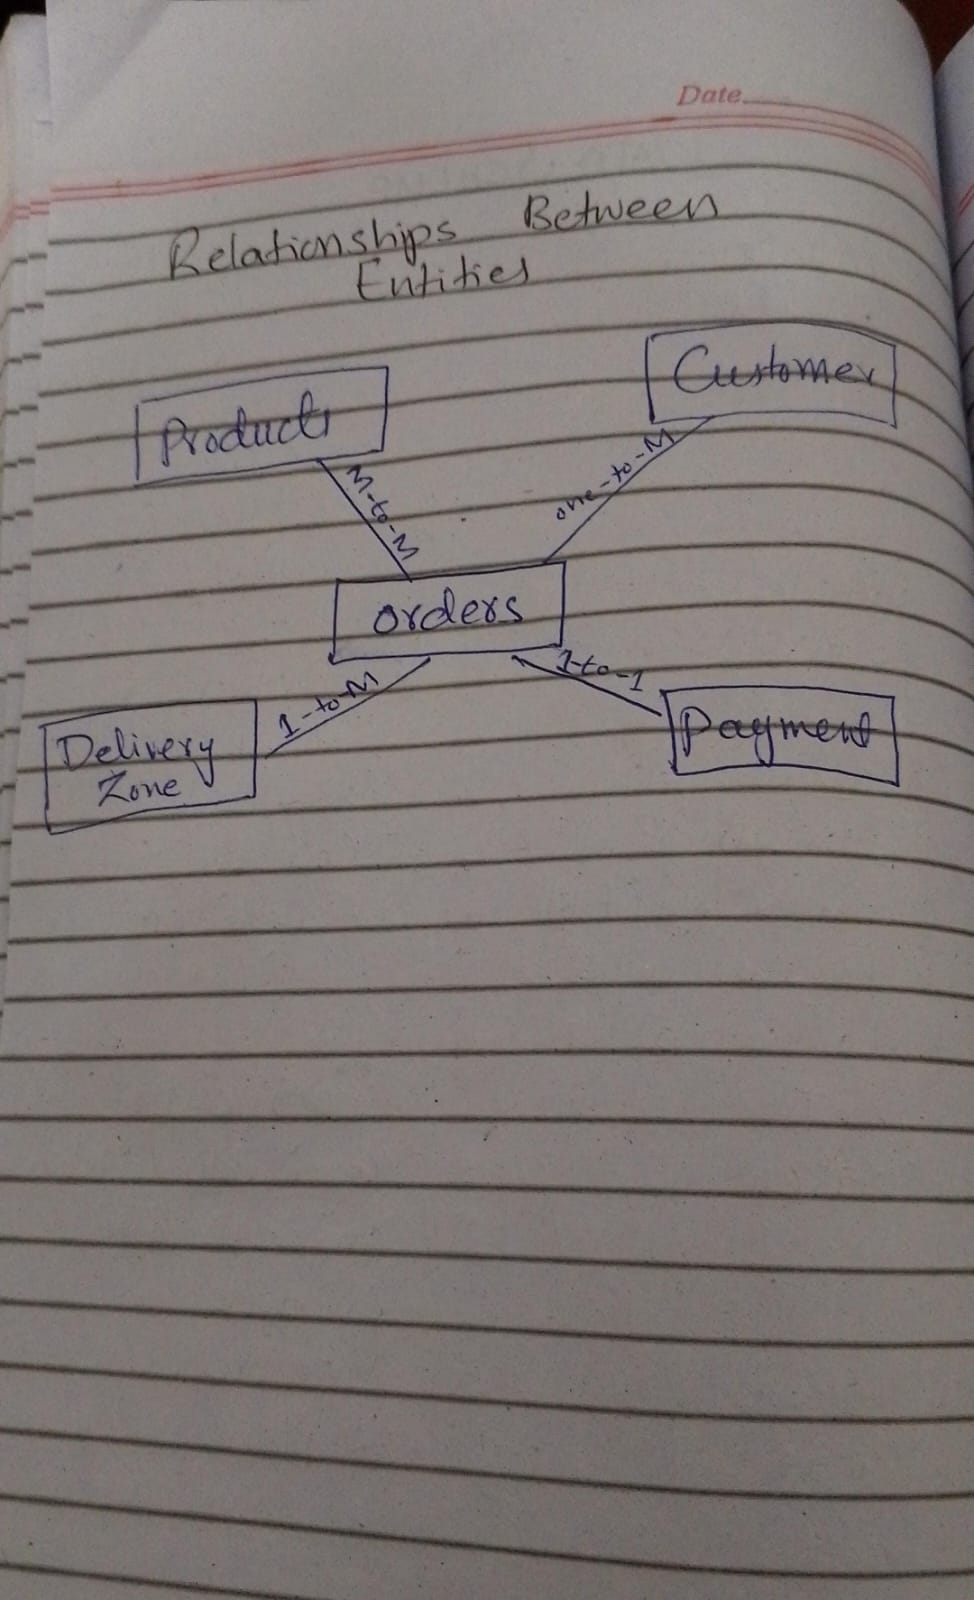 Date
Relationships Between
Entities
Products
Customer
M-to-M
one-to-M
orders
1-to-M
1-to-1
Delivery
Zone
Payment